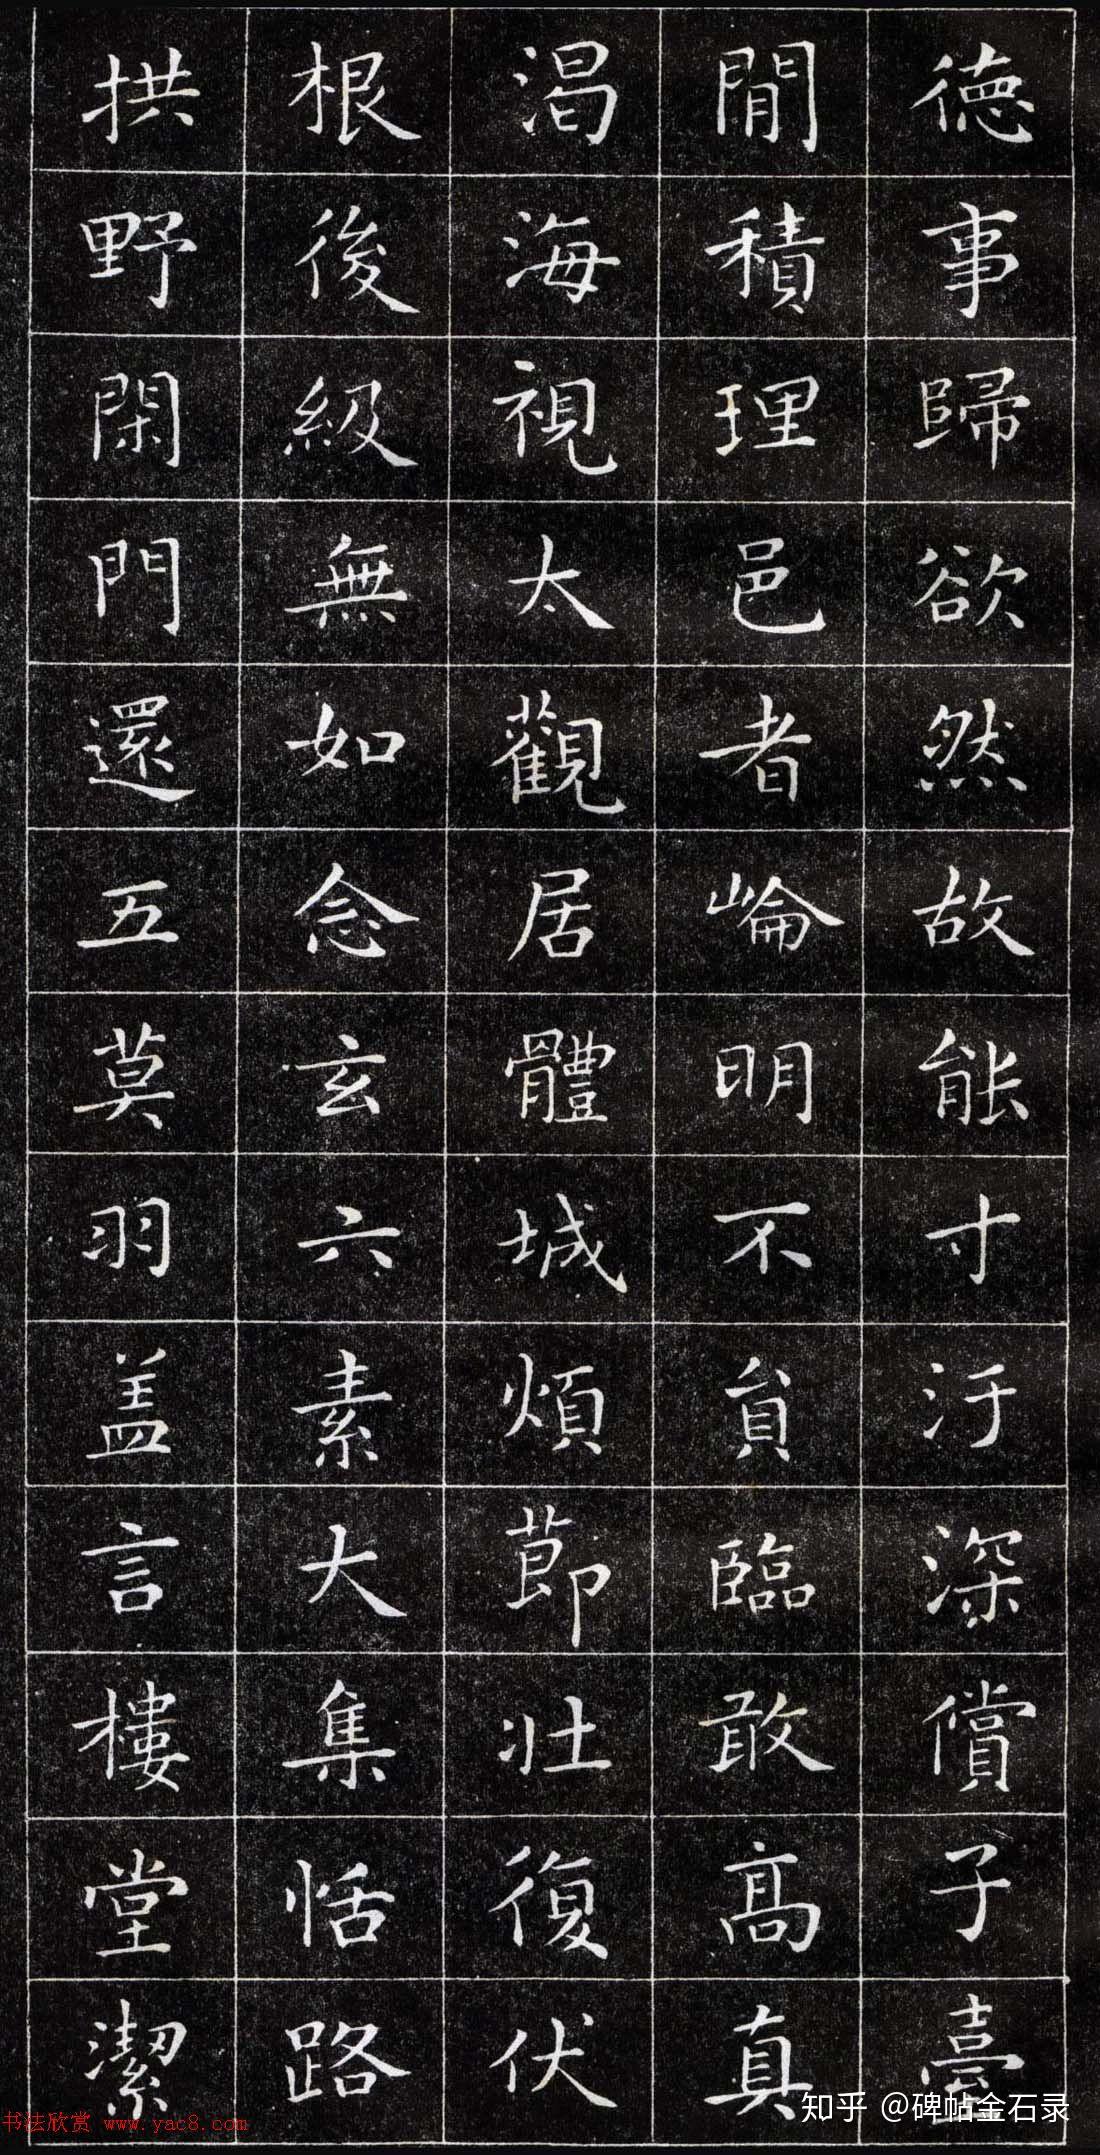 德事歸欲然故能寸汙深償子臺
閒積理邑者崘明不貟臨敢高真
渴海視太觀居體城煩莭壯復伏
根後級無如念玄六素大集恬路
拱野閑門還五莫羽盖言樓堂潔
知乎 @碑帖金石录
书法欣赏 www.yac8.com